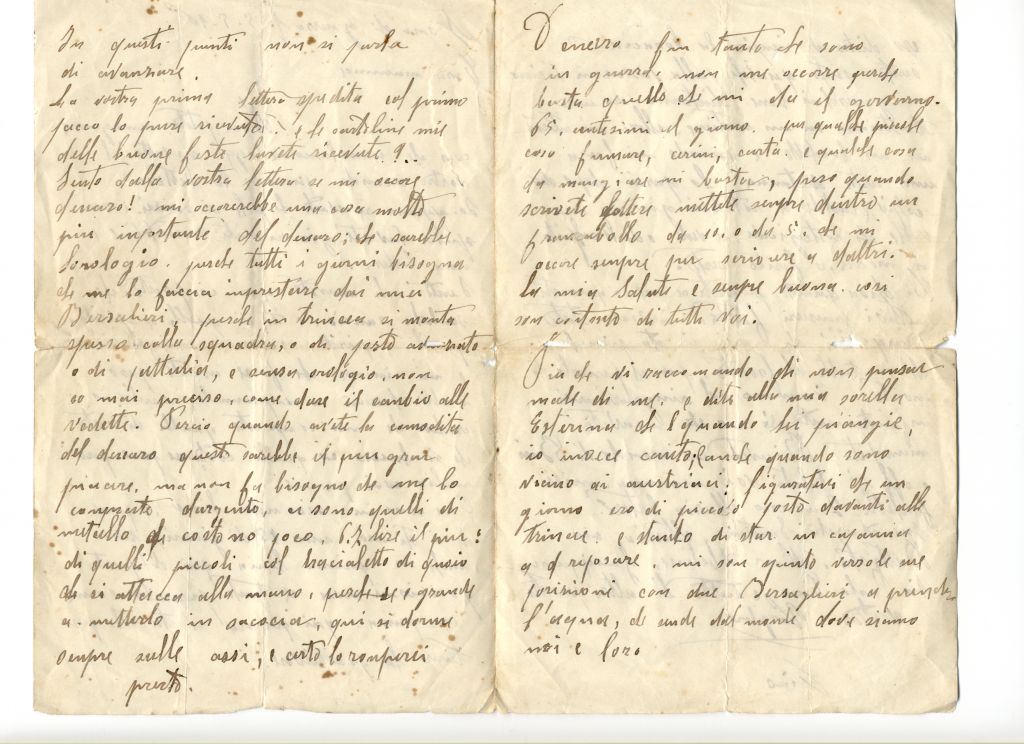 In questi punti non si parla
di avanzare.
La vostra prima lettera spedita col primo
pacco lo pure ricevuto. e le cartoline mie
delle buone feste lavete ricevute?..
Sento dalla vostra lettera se mi occore
denaro! mi occorerebbe una cosa molto
piu importante del denaro; che sarebbe
lorologio. perche tutti i giorni bisogna
che me lo faccia imprestare dai miei
Bersalieri, perche in trincea si monta
spesso colla squadra, o di posto avanzato
o di pattulia, e senza orologio, non
so mai preciso, come dare il cambio alle
vedette. Percio quando avete la comodita
del denaro questo sarebbe il piu gran
piacere, ma non fa bisogno che me lo
comprate dargento, ci sono quelli di
metallo costono poco, 6.7 lire il piu:
di quelli piccoli col bracialetto di cuoio
che si attacca alla mano, perche se e grande
a metterlo in sacocia, qui si dorme
sempre sulle assi, e certo lo romperei
presto.
Denerro fin tanto che sono
in guerra. non me occorre perche
basta quello che mi da il governo.
65. centesimi al giorno. per qualche piccola
cosa fumare, cerini, carta. e qualche cosa
da mangiare mi basta, pero quando
scrivete lettere mettete sempre dentro un
francobollo da 10. o da 5. che mi
occore sempre per scrivere a daltri.
la mia Salute e sempre buona. cosi
son contento di tutti voi.
Pia che vi raccomando di non pensar
male di me. e dite alla mia sorella
Esterina che quando lei piangie,
io invece canto; anche quando sono
vicino ai austriaci; figurativi che un
giorno ero di piccolo posto davanti alle
trincee e stanco di star in capanna
a riposare. mi son spinto verso le sue
posizioni con due Bersaglieri a prender
l'acqua, che scende dal monte dove siamo
noi e loro